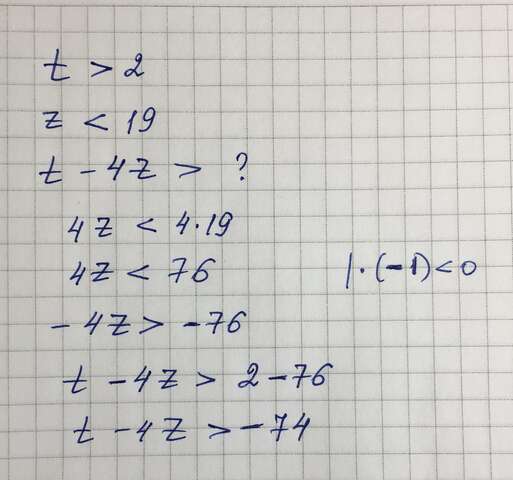 t > 2
z < 19
t - 4z > ?
4z < 4·19
4z < 76 |·(-1) < 0
-4z > -76
t - 4z > 2 - 76
t - 4z > -74